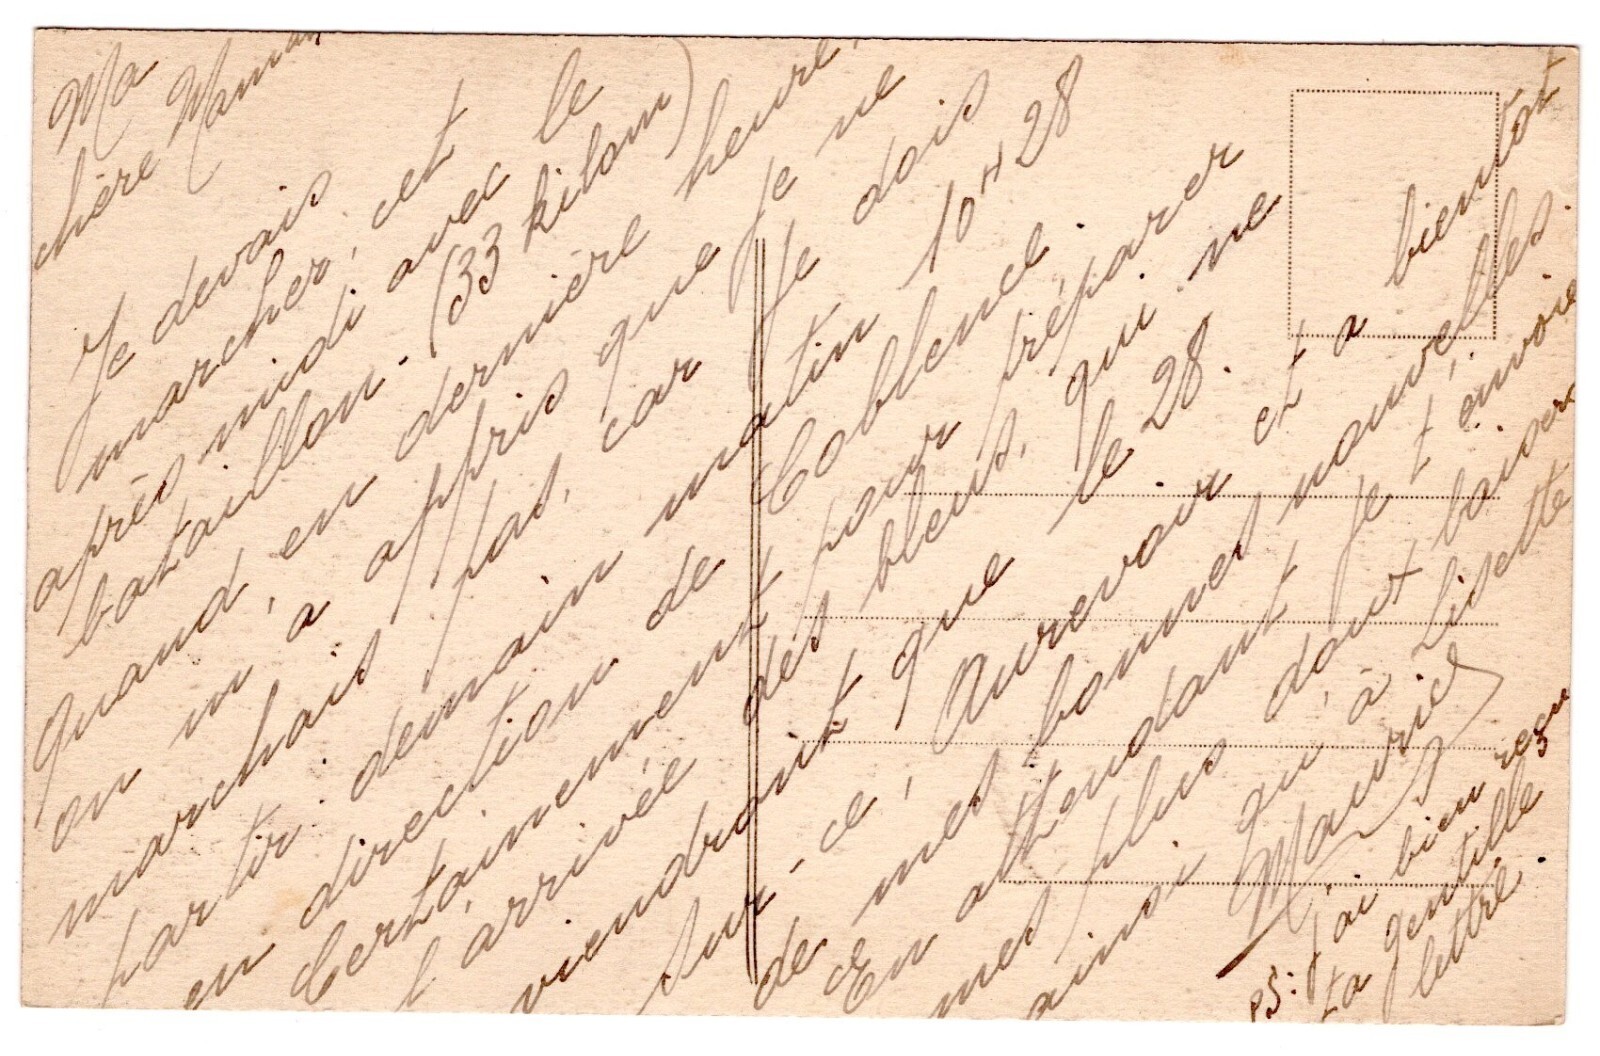 Ma
chère Maman
Je devais
marcher, cet
après midi avec le
bataillon. (33 kilom)
quand, en dernière heure,
on m'a appris que je ne
marchais pas, car je dois
partir demain matin 10 H 28
en direction de Coblence.
Certainement pour préparer
l'arrivée des bleus, qui ne
viendront que le 28.
Sur-ce, Aurevoir et a bientôt
de mes bonnes nouvelles.
En attendant je t'envoie
mes plus doux baisers
ainsi qu'à Lisette
Maurice
PS: J'ai bien reçu
ta gentille
lettre.